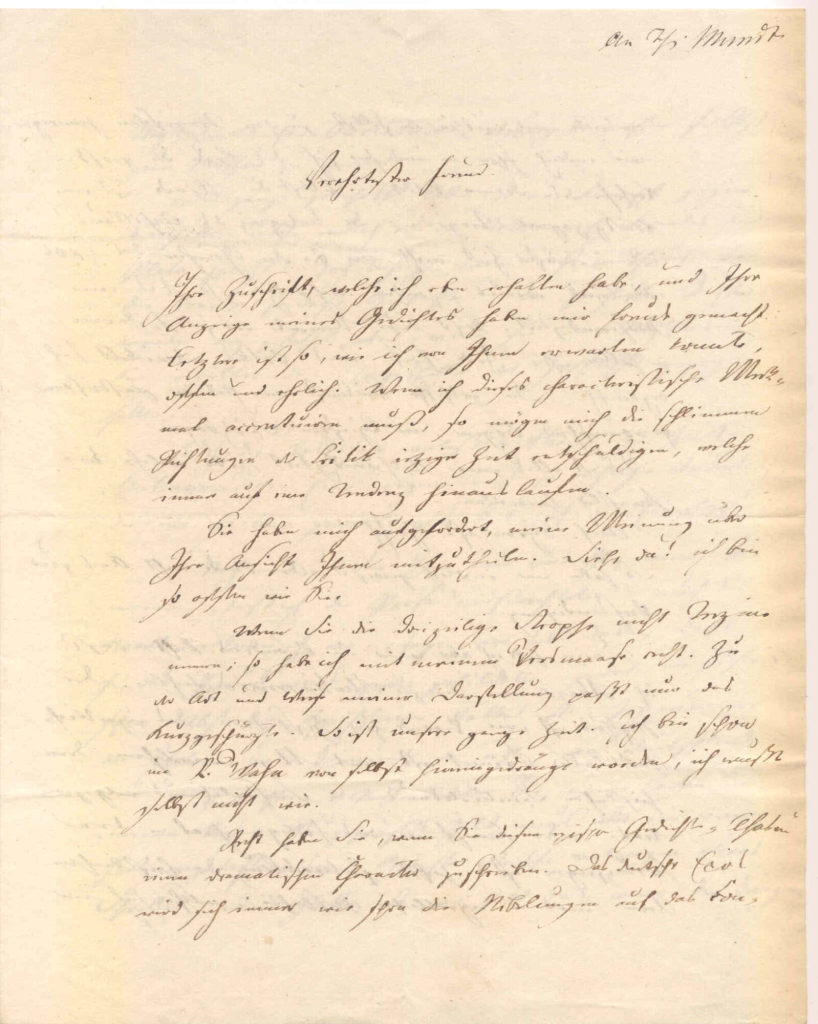 An Th. Mundt
Verehrtester Freund.
Ihre Zuschrift, welche ich eben erhalten habe, und Ihre
Anzeige meines Gedichtes haben mir Freude gemacht.
Letztere ist so, wie ich von Ihnen erwarten konnte,
offen und ehrlich. Wenn ich dieses characteristische Merk-
mal accentuiren muß, so mögen mich die schlimmen
Richtungen der Kritik jetziger Zeit entschuldigen, welche
immer auf eine Tendenz hinauslaufen.
Sie haben mich aufgefordert, meine Meinung über
Ihre Ansicht Ihnen mitzutheilen. Siehe da! ich bin
so offen wie Sie.
Wenn Sie die dreizeilige Strophe nicht Terzine
nennen; so habe ich mit meinem Versmaaße recht. Zu
der Art und Weise meiner Darstellung paßt nur das
Kurzgeschürzte. So ist unsere ganze Zeit. Ich bin schon
im von selbst hineingedrängt worden, ich wußte
selbst nicht wie.
Recht haben Sie, wenn Sie diesen Gedichte
einen dramatischen Character zuschreiben. Das deutsche Epos
wird sich immer wie schon die Nibelungen auf das